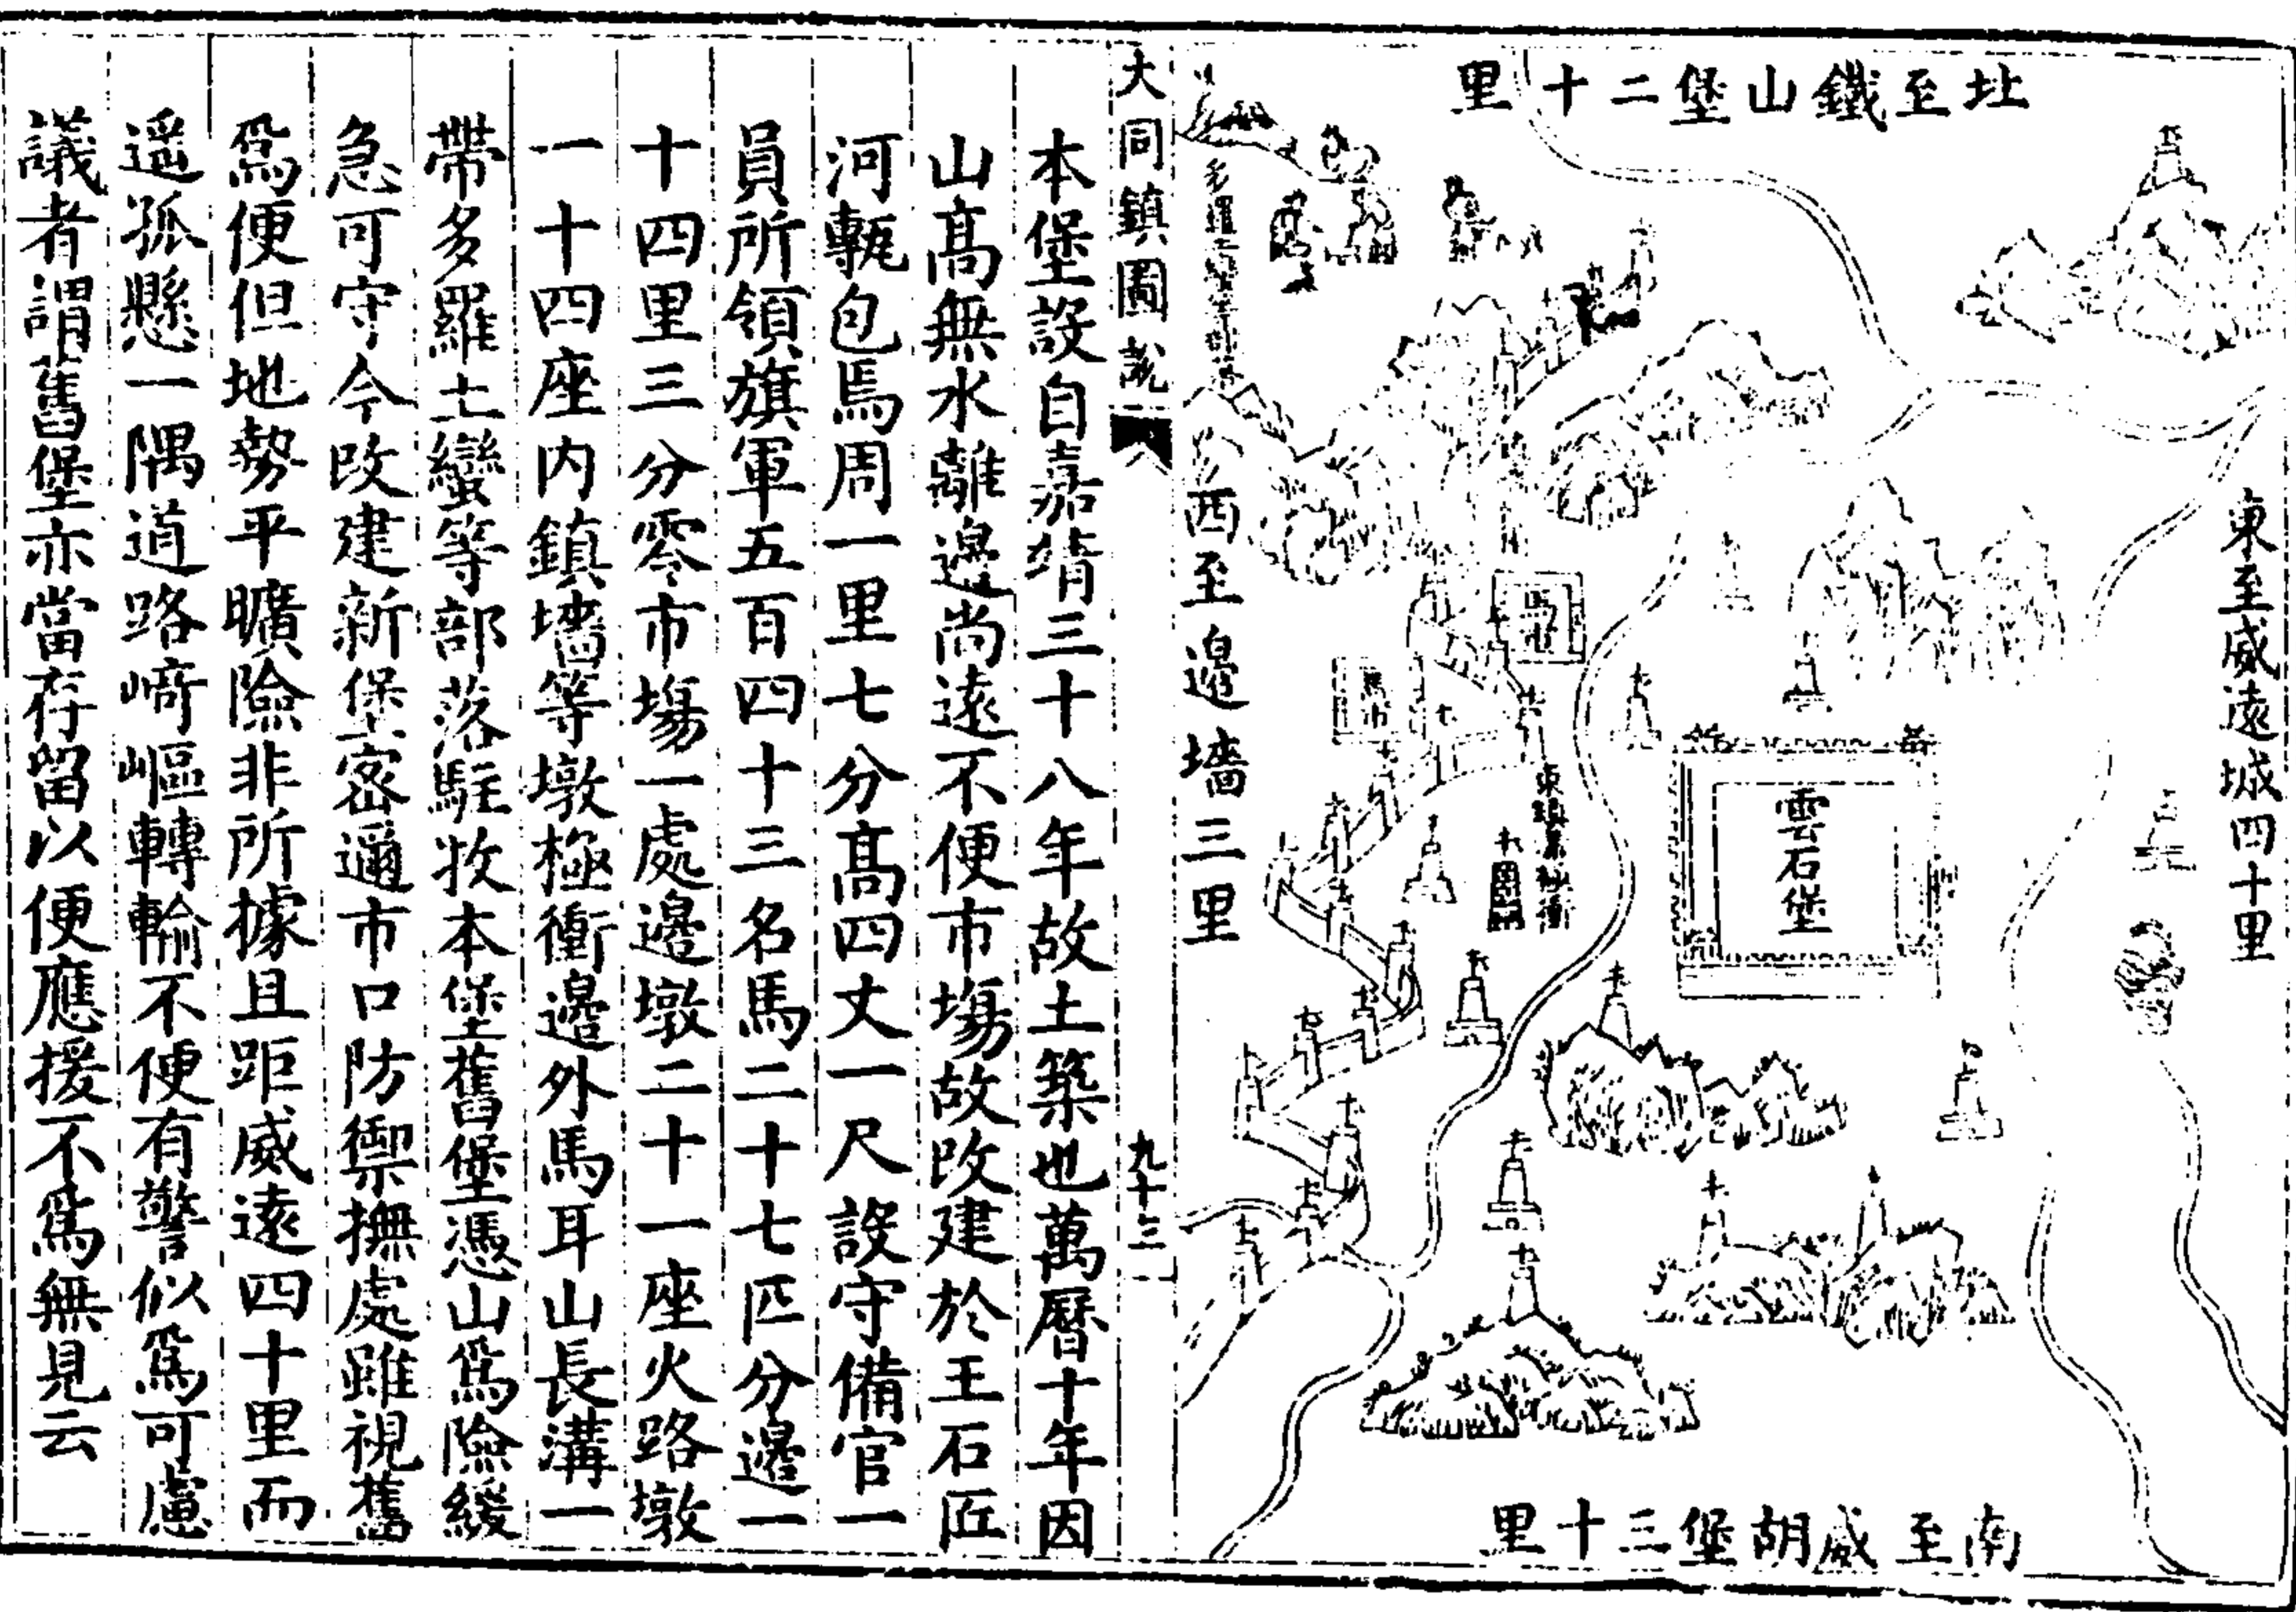 北至鐵山堡二十里
東至威遠城四十里
雲石堡
馬市
馬市
東鎮墩極衝
南至威胡堡三十里
西至邊墻三里
大同鎮圖說
九十三
本堡設自嘉靖三十八年故土築也萬曆十年因
山髙無水離邊尚遠不便市場故改建於王石匠
河甎包焉周一里七分髙四丈一尺設守備官一
員所領旗軍五百四十三名馬二十七匹分邊一
十四里三分零市場一處邊墩二十一座火路墩
一十四座内鎮墻等墩極衝邊外馬耳山長溝一
帶多羅土蠻等部落駐牧本堡舊堡憑山爲險緩
急可守今改建新堡密邇市口防禦撫處雖視舊
爲便但地勢平曠險非所據且距威遠四十里而
遥孤懸一隅道路﨑嶇轉輸不便有警似爲可慮
議者謂舊堡亦當存留以便應援不爲無見云